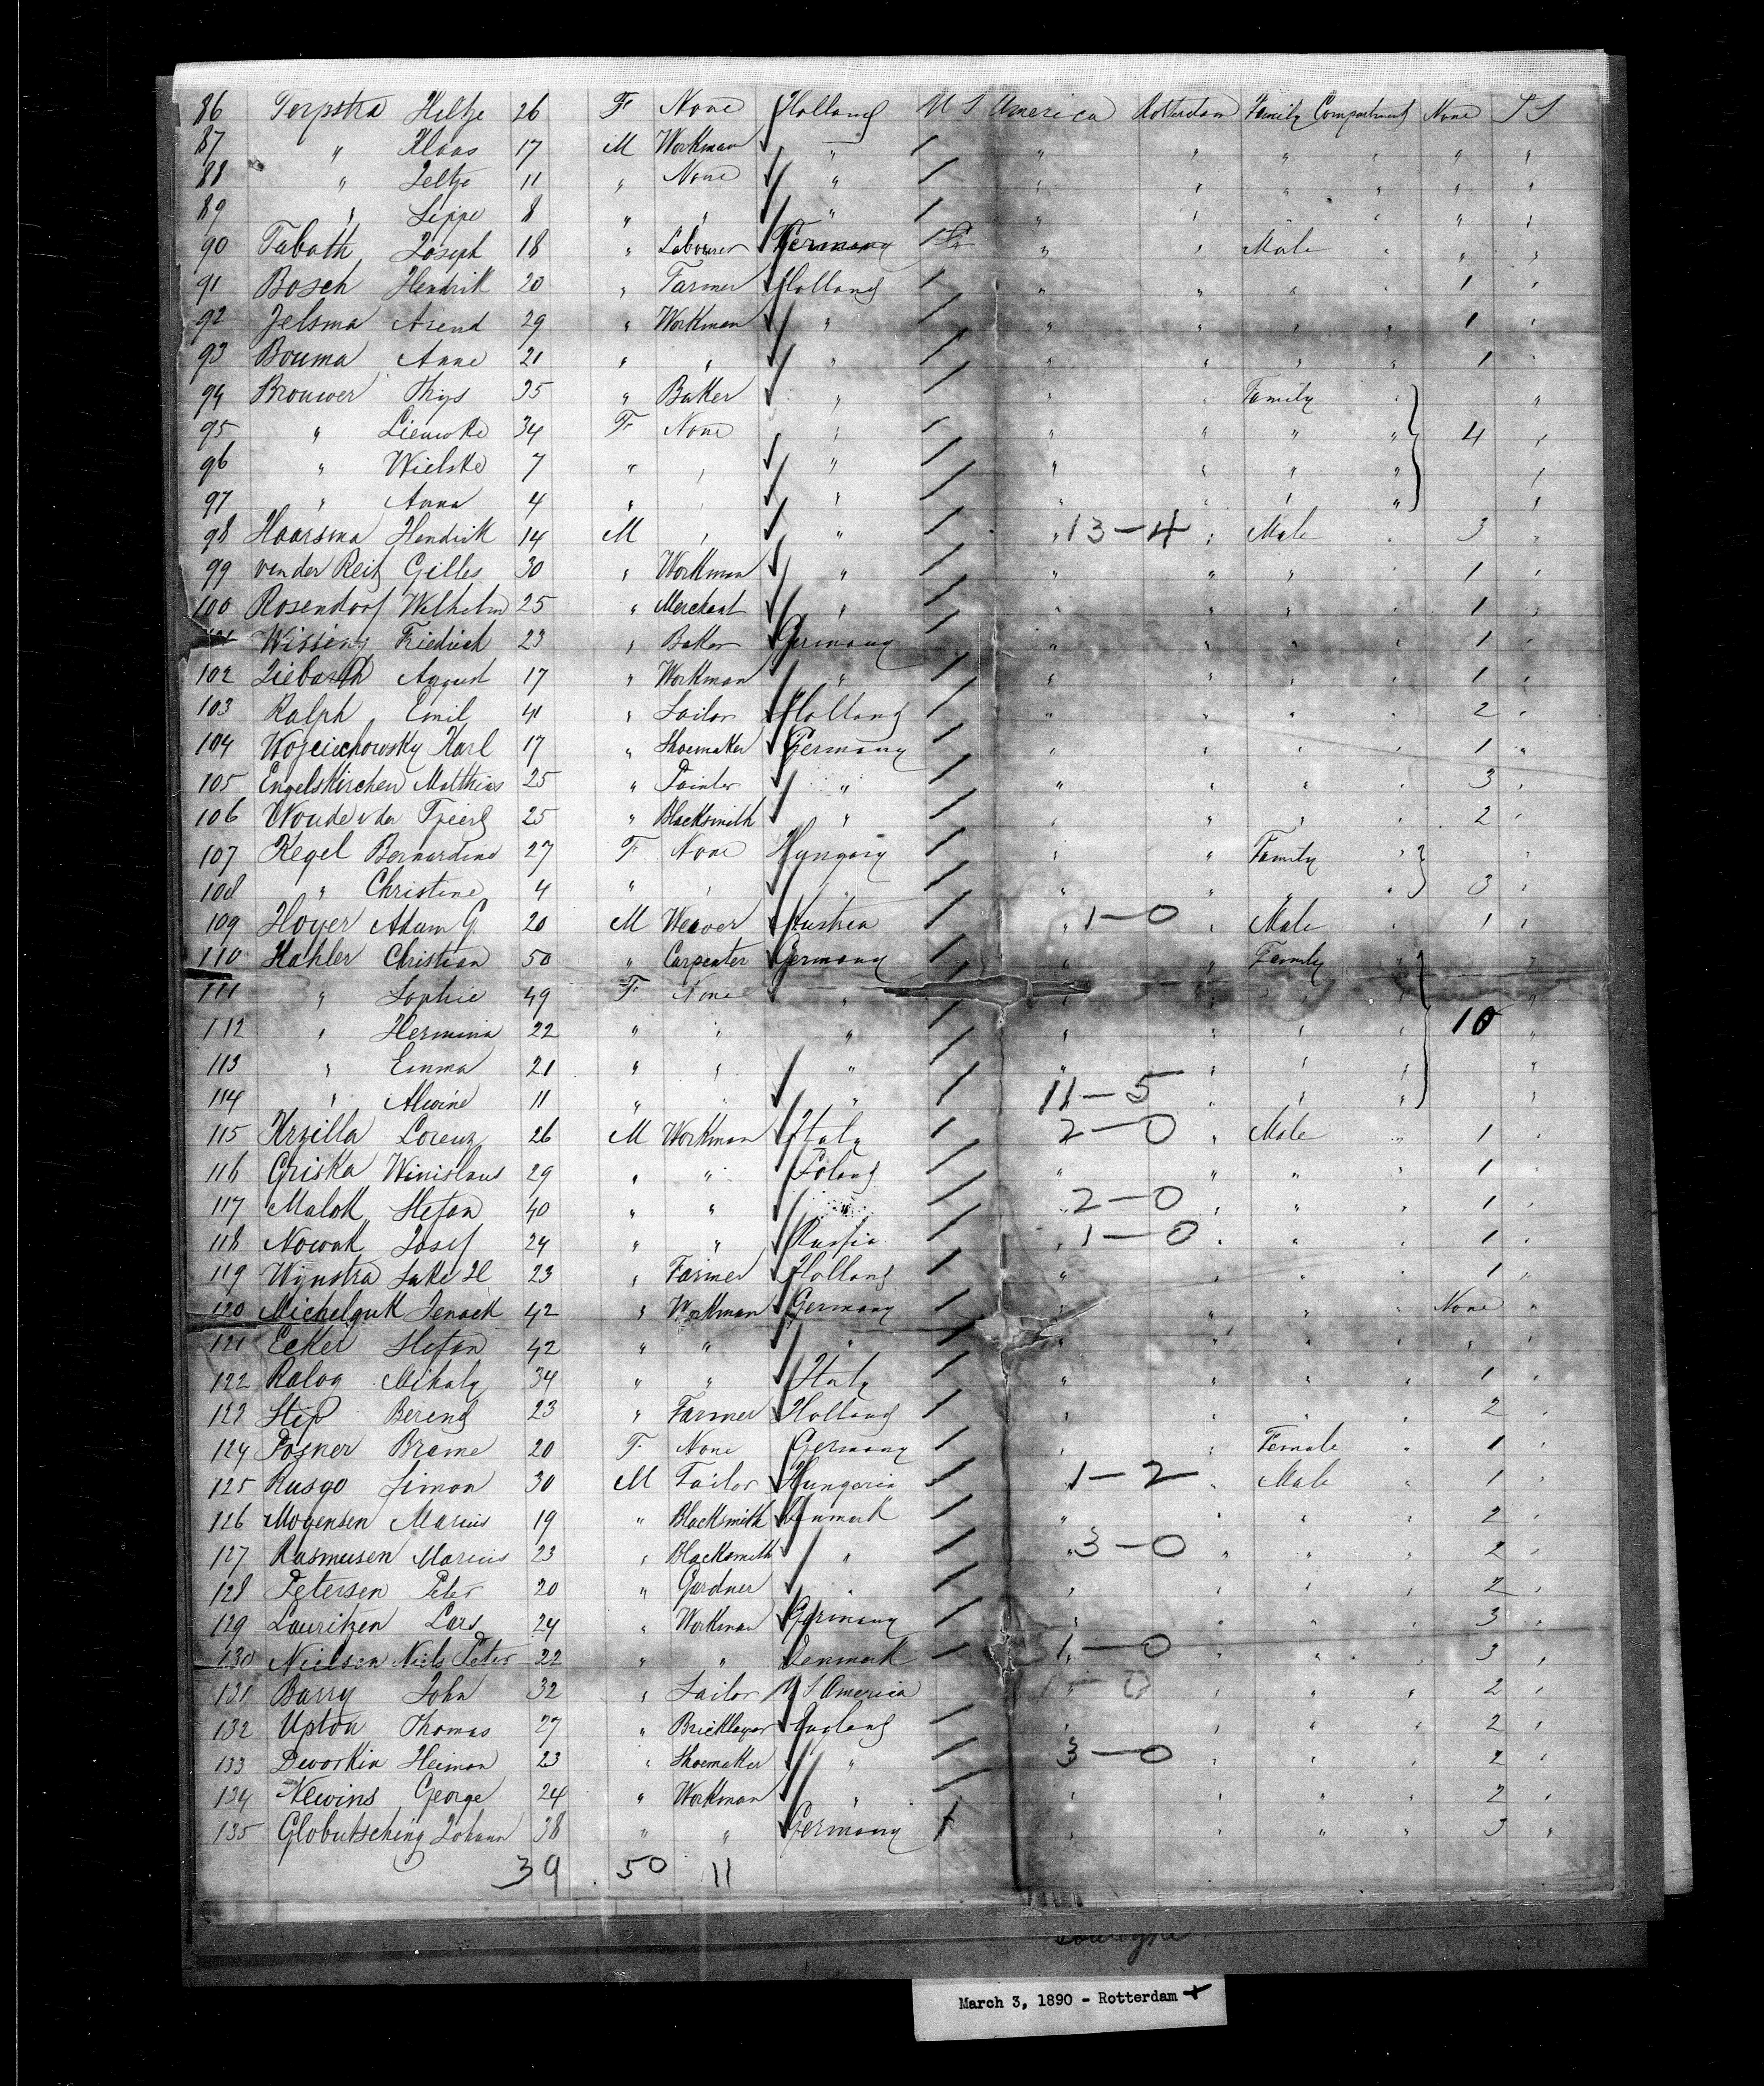 86 Terpstra Hiltje 26 F None Holland U S America Rotterdam Family Compartment None S S
87 " Klaas 17 M Workman " " " " " " "
88 " Jeltje 11 " None " " " " " " "
89 " Sippe 8 " " " " " " " " "
90 Tabath Joseph 18 " Labourer Germany " " Male " " "
91 Bosch Hendrik 20 " Farmer Holland " " " " 1 "
92 Jelsma Arend 29 " Workman " " " " " 1 "
93 Bouma Anne 21 " " " " " " " 1 "
94 Brouwer Thys 35 " Baker " " " Family " "
95 " Lieuwke 34 F None " " " " " 4 "
96 " Wielske 7 " " " " " " " "
97 " Anna 4 " " " " " " " "
98 Haarsma Hendrik 14 M " " " 13-4 " Male " 3 "
99 van der Reit Gilles 30 " Workman " " " " " 1 "
100 Rosendorf Wilhelm 25 " Merchant " " " " " 1 "
Wissing Friedrich 23 " Baker Germany " " " " 1 "
102 Ziebarth August 17 " Workman " " " " " 1 "
103 Ralph Emil 41 " Sailor Holland " " " " 2 "
104 Wojciechowsky Karl 17 " Shoemaker Germany " " " " 1 "
105 Engelskirchen Matthias 25 " Painter " " " " " 3 "
106 Woude v der Tjeerd 25 " Blacksmith " " " " " 2 "
107 Kegel Bernardine 27 F None Hungary " " Family " "
108 " Christine 4 " " " " " " " 3 "
109 Hoyer Adam G 20 M Weaver Austria " 1-0 " Male " 1 "
110 Hahler Christian 50 " Carpenter Germany " " Family " "
111 " Sophie 49 F None " " " " " "
112 " Hermina 22 " " " " " " " 10 "
113 " Emma 21 " " " " " " " "
114 " Alwine 11 " " " 11-5 " " " "
115 Krzilla Lorenz 26 M Workman Italy 2-0 " Male " 1 "
116 Griska Winislaus 29 " " Poland " " " " 1 "
117 Malok Stefan 40 " " " " 2-0 " " " 1 "
118 Nowak Josef 24 " " Russia " 1-0 " " " 1 "
119 Wijnstra Sake H 23 " Farmer Holland " " " " 1 "
120 Michelguk Jenack 42 " Workman Germany " " " " None "
121 Ecker Stefan 42 " " " " " " " " "
122 Ralog Mihaly 34 " " Italy " " " " 1 "
123 Stip Berend 23 " Farmer Holland " " " " 2 "
124 Posner Brame 20 F None Germany " " Female " 1 "
125 Rusgo Simon 30 M Tailor Hungaria 1-2 " Male " 1 "
126 Mogensen Marius 19 " Blacksmith Denmark " " " " 2 "
127 Rasmusen Marius 23 " Blacksmith " " 3-0 " " " 2 "
128 Petersen Peter 20 " Gardner " " " " " 2 "
129 Lauritzen Lars 24 " Workman Germany " " " " 3 "
130 Nielson Niels Peter 22 " " Denmark 1-0 " " " 3 "
131 Barry John 32 " Sailor U S America 1-0 " " " 2 "
132 Upton Thomas 27 " Bricklayer England " " " " 2 "
133 Dworkin Heiman 23 " Shoemaker " 3-0 " " " 2 "
134 Newins George 24 " Workman " " " " " 2 "
135 Globutsching Johann 38 " " Germany " " " " 3 "
39 50 11
March 3, 1890 - Rotterdam